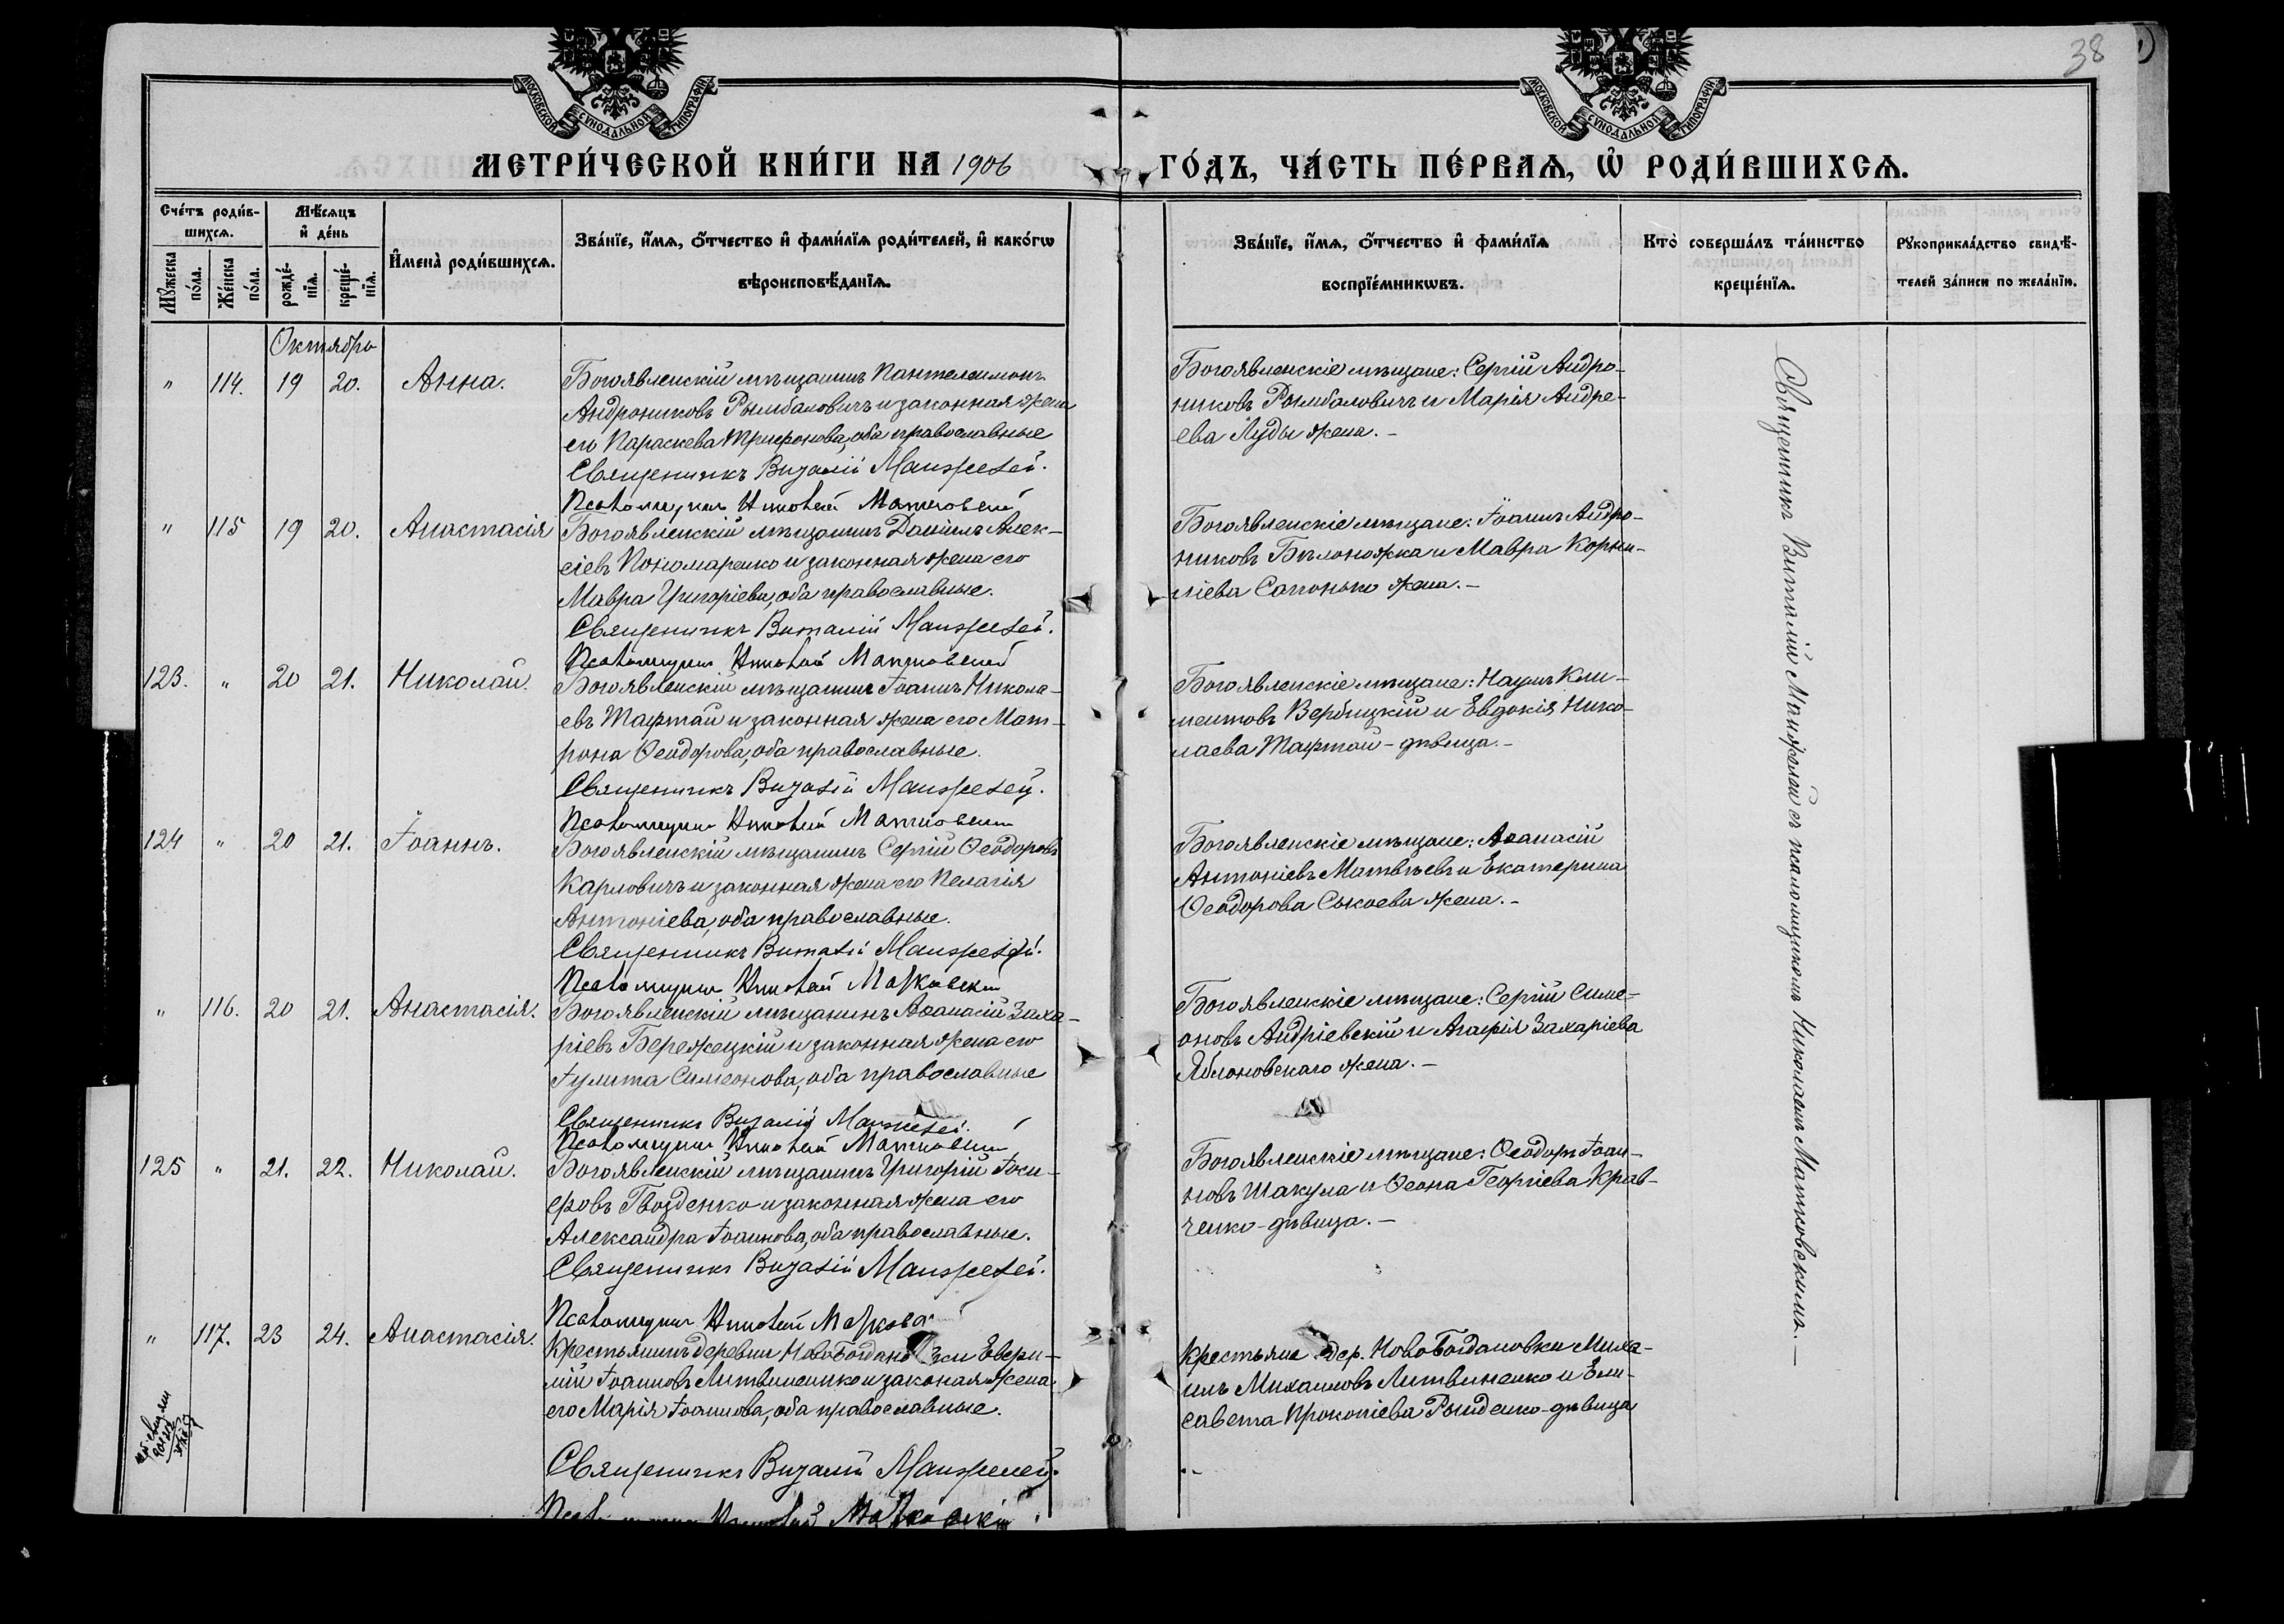 38
МОСКОВСКОЙ СѴНОДАЛЬНОЙ ТИПОГРАФІИ
МОСКОВСКОЙ СѴНОДАЛЬНОЙ ТИПОГРАФІИ
МЕТРИ́ЧЕСКОЙ КНИ́ГИ НА 1906
ГО́ДЪ, ЧА́СТЬ ПЕ́РВАѦ, Ѡ РОДИ́ВШИХСѦ.
Сче́тъ роди́в-
шихсѧ.
Мꙋ́жеска
по́ла.
Же́нска
по́ла.
Мѣ́сѧцъ
и҆ де́нь
рожде́-
нїѧ.
креще́-
нїѧ.
И҆мена̀ роди́вшихсѧ.
Зва́нїе, и҆́мѧ, ѻ҆́тчество и҆ фами́лїѧ роди́телей, и҆ како́гѡ
вѣроисповѣ́данїѧ.
Зва́нїе, и҆́мѧ, ѻ҆́тчество и҆ фами́лїѧ
воспрїе́мникѡвъ.
Кто̀ соверша́лъ та́инство
креще́нїѧ.
Рꙋкоприкла́дство свидѣ́-
телей за́писи по жела́нїю.
Октябрь
" 114. 19 20. Анна.
Богоявленскій мѣщанинъ Пантелеимонъ
Андрониковъ Рымбаловичъ и законная жена
его Параскева Трифонова, оба православные
Священникъ Виталій Манжелей.
Псаломщикъ Николай Матковскій
Богоявленскіе мѣщане: Сергій Андро-
никовъ Рымбаловичъ и Марія Андре-
ева Луды жена. -
" 115 19 20. Анастасія
Богоявленскій мѣщанинъ Даніилъ Алек-
сіевъ Пономаренко и законная жена его
Мавра Григоріева, оба православные.
Священникъ Виталій Манжелей.
Псаломщикъ Николай Матковскій
Богоявленскіе мѣщане: Іоаннъ Андро-
никовъ Бѣлоножка и Мавра Корни-
ліева Сапонько жена. -
123. " 20 21. Николай.
Богоявленскій мѣщанинъ Іоаннъ Никола-
евъ Тафтай и законная жена его Мат-
рона Ѳеодорова, оба православные.
Священникъ Виталій Манжелей.
Псаломщикъ Николай Матковскій
Богоявленскіе мѣщане: Наумъ Кли-
ментовъ Вербицкій и Евдокія Нико-
лаева Тафтай - дѣвица. -
124 " 20 21. Іоаннъ.
Богоявленскій мѣщанинъ Сергій Ѳеодоровъ
Карловичъ и законная жена его Пелагія
Антоніева, оба православные.
Священникъ Виталій Манжелей.
Псаломщикъ Николай Матковскій
Богоявленскіе мѣщане: Аѳанасій
Антоніевъ Матвѣевъ и Екатерина
Ѳеодорова жена. -
" 116. 20 21. Анастасія.
Богоявленскій мѣщанинъ Аѳанасій Заха-
ріевъ Бережецкій и законная жена его
Іулита Симеонова, оба православные
Священникъ Виталій Манжелей.
Псаломщикъ Николай Матковскій
Богоявленскіе мѣщане: Сергій Симе-
оновъ Андріевскій и Агафія Захаріева
Яблоновскаго жена. -
125 " 21. 22. Николай.
Богоявленскій мѣщанинъ Григорій Іоси-
фовъ Гвозденко и законная жена его
Александра Іоаннова, оба православные.
Священникъ Виталій Манжелей.
Псаломщикъ Николай Матковскій
Богоявленскіе мѣщане: Ѳеодоръ Іоан-
новъ Шакула и Ѳеона Георгіева Крав-
ченко - дѣвица. -
" 117. 23 24. Анастасія.
Крестьянинъ деревни НовоБогдановки Евѳи-
мій Іоанновъ Литвиненко и законая жена
его Марія Іоаннова, оба православные.
Священникъ Виталій Манжелей.
Псаломщикъ Николай Матковскій
Крестьяне дер. НовоБогдановки Миха-
илъ Михаиловъ Литвиненко и Ели-
савета Прокопіева Рынденко - дѣвица
Священникъ Виталій Манжелей съ псаломщикомъ Николаемъ Матковскимъ. -